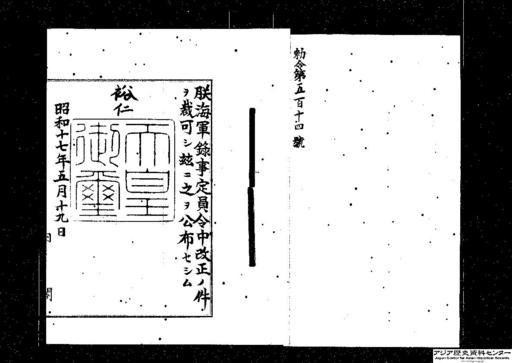 勅令第五百十四號
朕海軍錄事定員令中改正ノ件
ヲ裁可シ玆ニ之ヲ公布セシム
裕仁
天皇
御璽
昭和十七年五月十九日
内閣
アジア歴史資料センター
Japan Center for Asian Historical Records